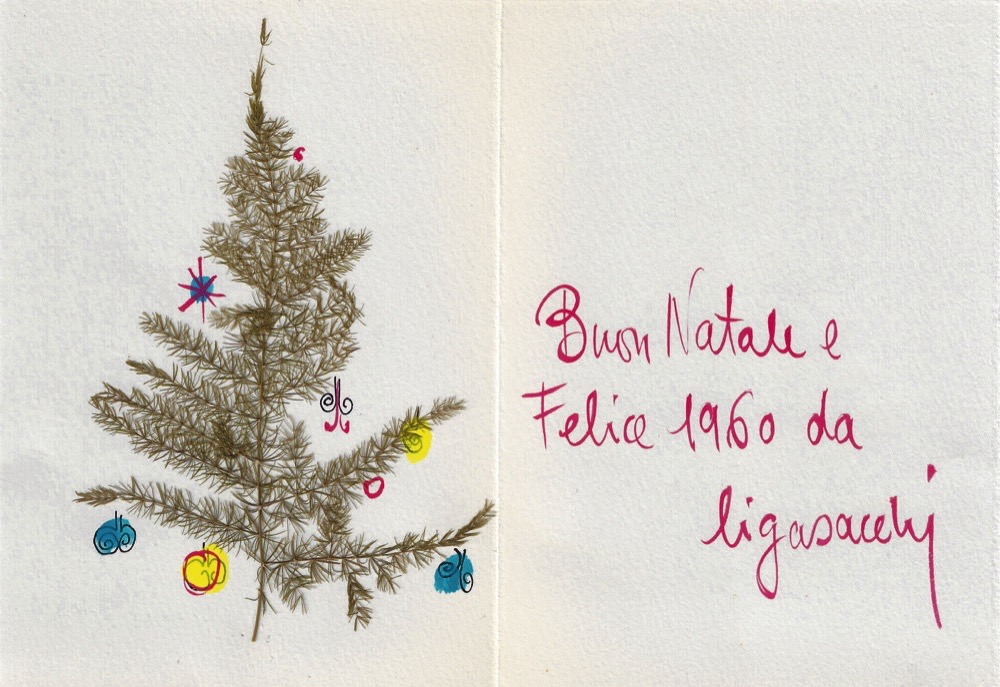 Buon Natale e
Felice 1960 da
ligasacchj